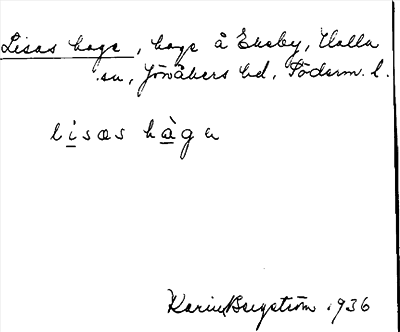 Lisas hage, hage å Ekeby, Halla
sn, Jönåkers hd, Söderm. l.
lisas hàga
Karin Bergström 1936